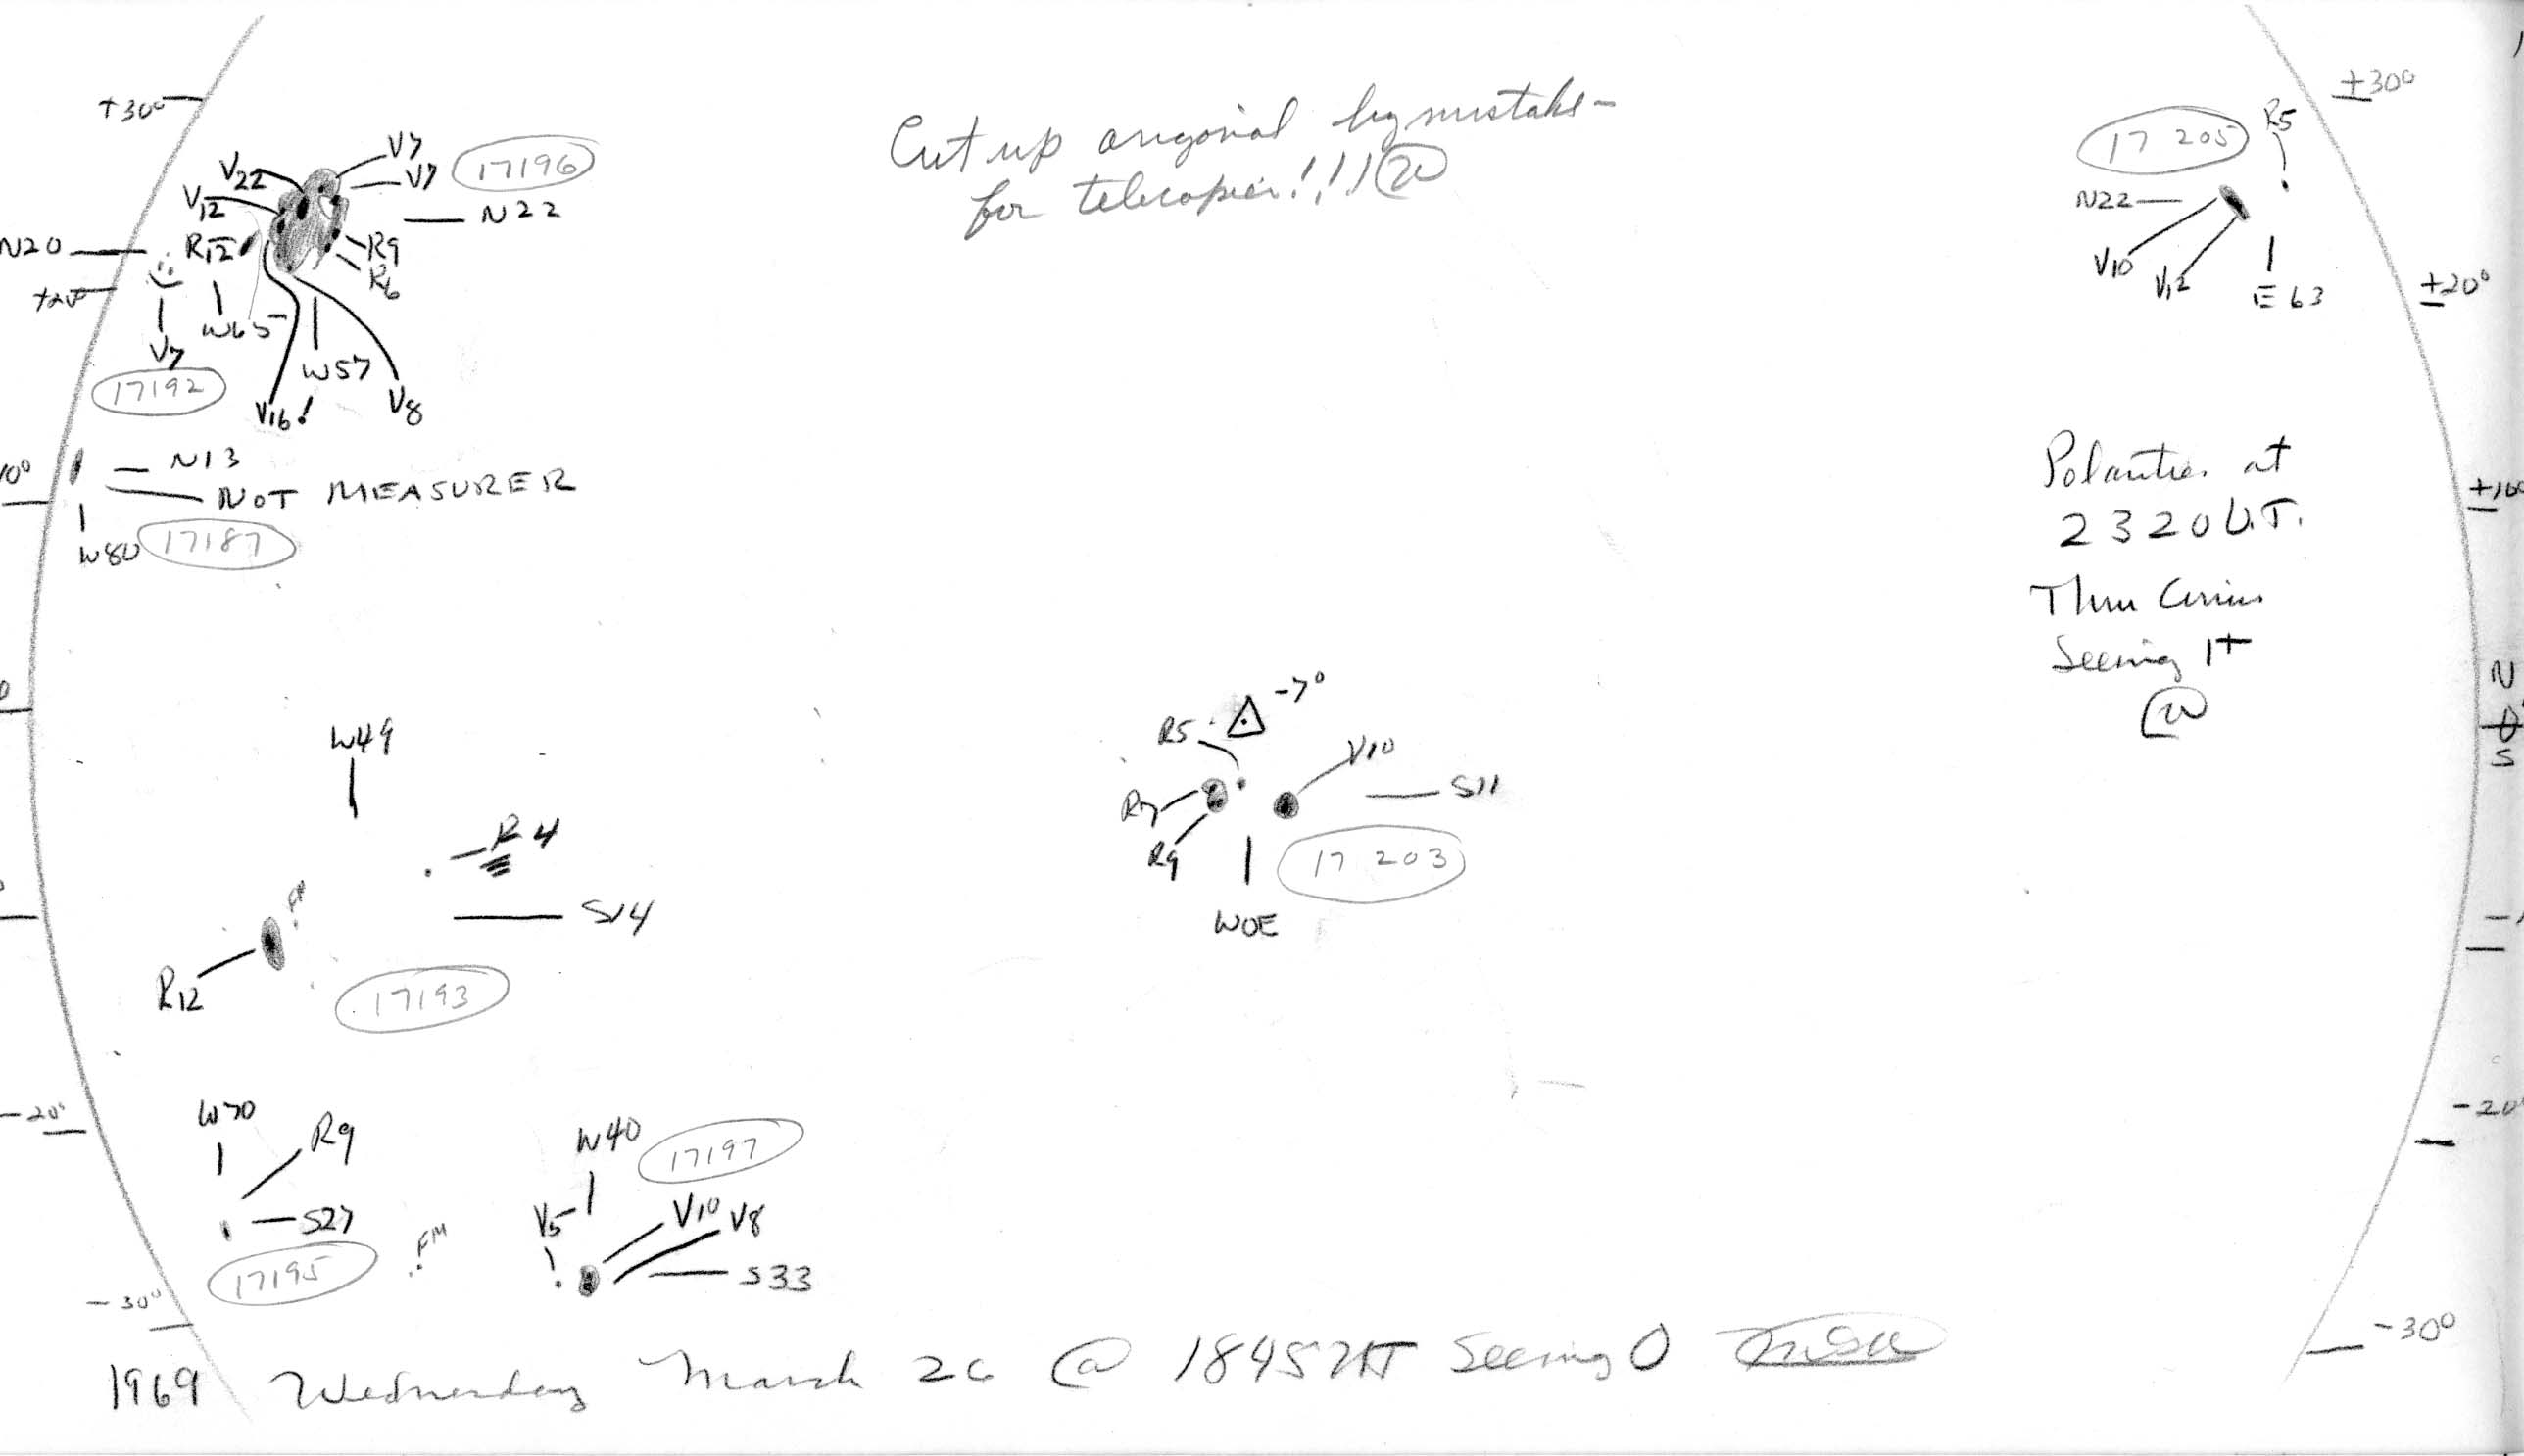 +30°
V22
V7
V7
17196
V12
N22
N20
R12
R9
R6
+20°
W65
V7
W57
17192
V16
V8
N13
10°
NOT MEASURER
W80
17187
Cut up origonial by mistake—
for telecopier!!! W
+30°
R5
17 205
N22
V10
V12
E63
+20°
Polarities at
2320 U.T.
+10°
Thru Cirrus
Seeing 1+
W
N
0°
S
W49
R4
S14
R12
17193
-7°
R5
V10
R7
S11
R9
17 203
W0E
-20°
W70
R9
S27
17195
FM
-30°
W40
17197
V5
V10
V8
S33
-20°
-30°
1969 Wednesday March 26 @ 1845 UT Seeing 0